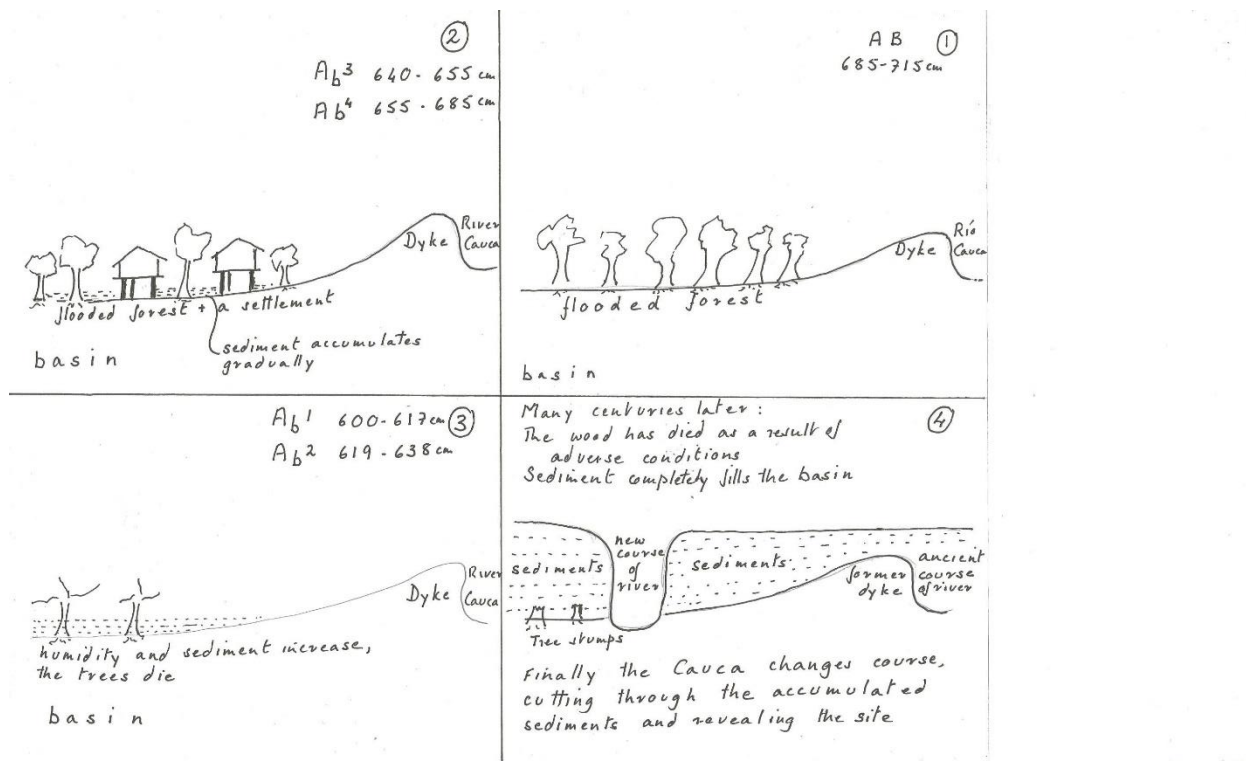 ①
A B
685-715cm
Dyke
Río
Cauca
flooded forest
basin
②
Ab³ 640 - 655 cm
Ab⁴ 655 - 685 cm
Dyke
River
Cauca
flooded forest + a settlement
sediment accumulates
gradually
basin
③
Ab¹ 600-617cm
Ab² 619-638cm
Dyke
River
Cauca
humidity and sediment increase,
the trees die
basin
④
Many centuries later:
The wood has died as a result of
adverse conditions
Sediment completely fills the basin
sediments
new
course
of
river
sediments
former
dyke
ancient
course
of river
Tree stumps
Finally the Cauca changes course,
cutting through the accumulated
sediments and revealing the site